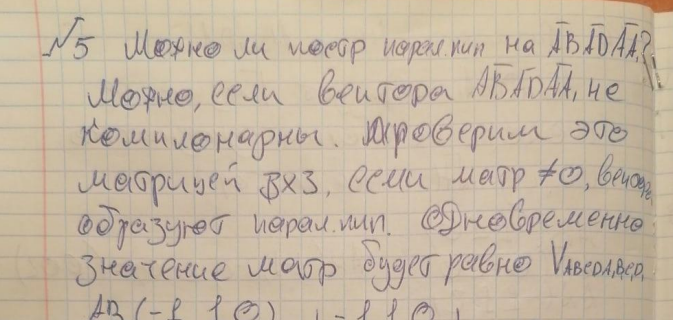 №5 Можно ли постр парал.пип на AB AD AA₁?
Можно, если вектора AB AD AA₁ не
комилонарны. проверим это
матрицей 3x3, если матр ≠0, вектора
образуют парал.пип. Одновременно
значение матр будет равно VABCDA₁B₁C₁D₁
AB (-1 1 0) | -1 1 0 |